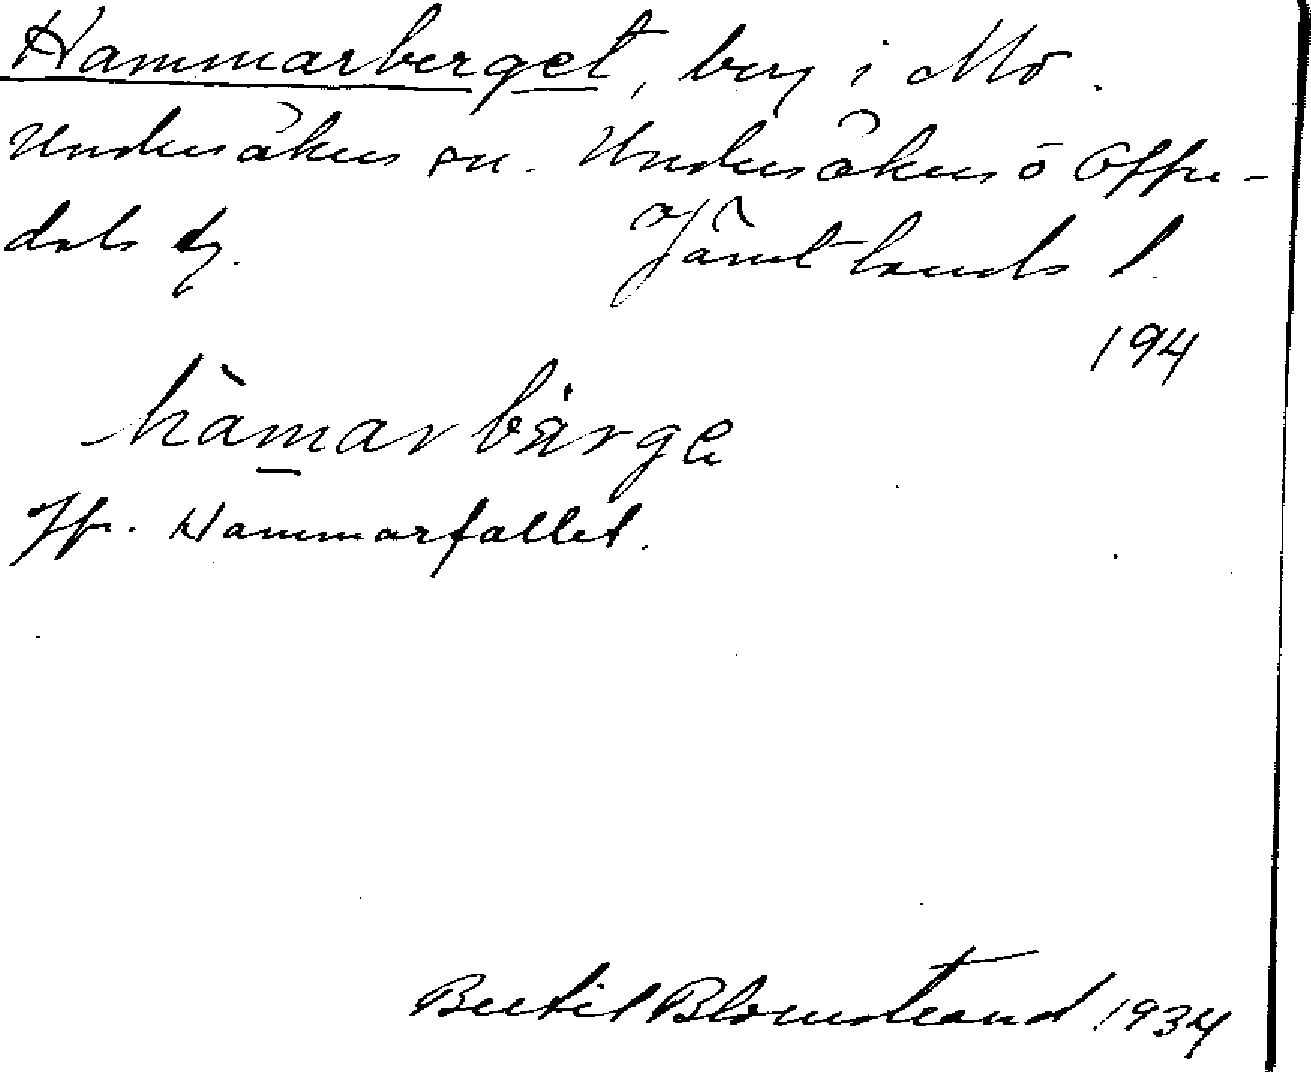 Hammarberget, berg i Mo.
Undersåkers sn. Undersåkers o Offer-
dals tg. Jämtlands l.
194
hàmar bärga
Jfr. Hammarfallet.
Bertil Blomstrand 1934